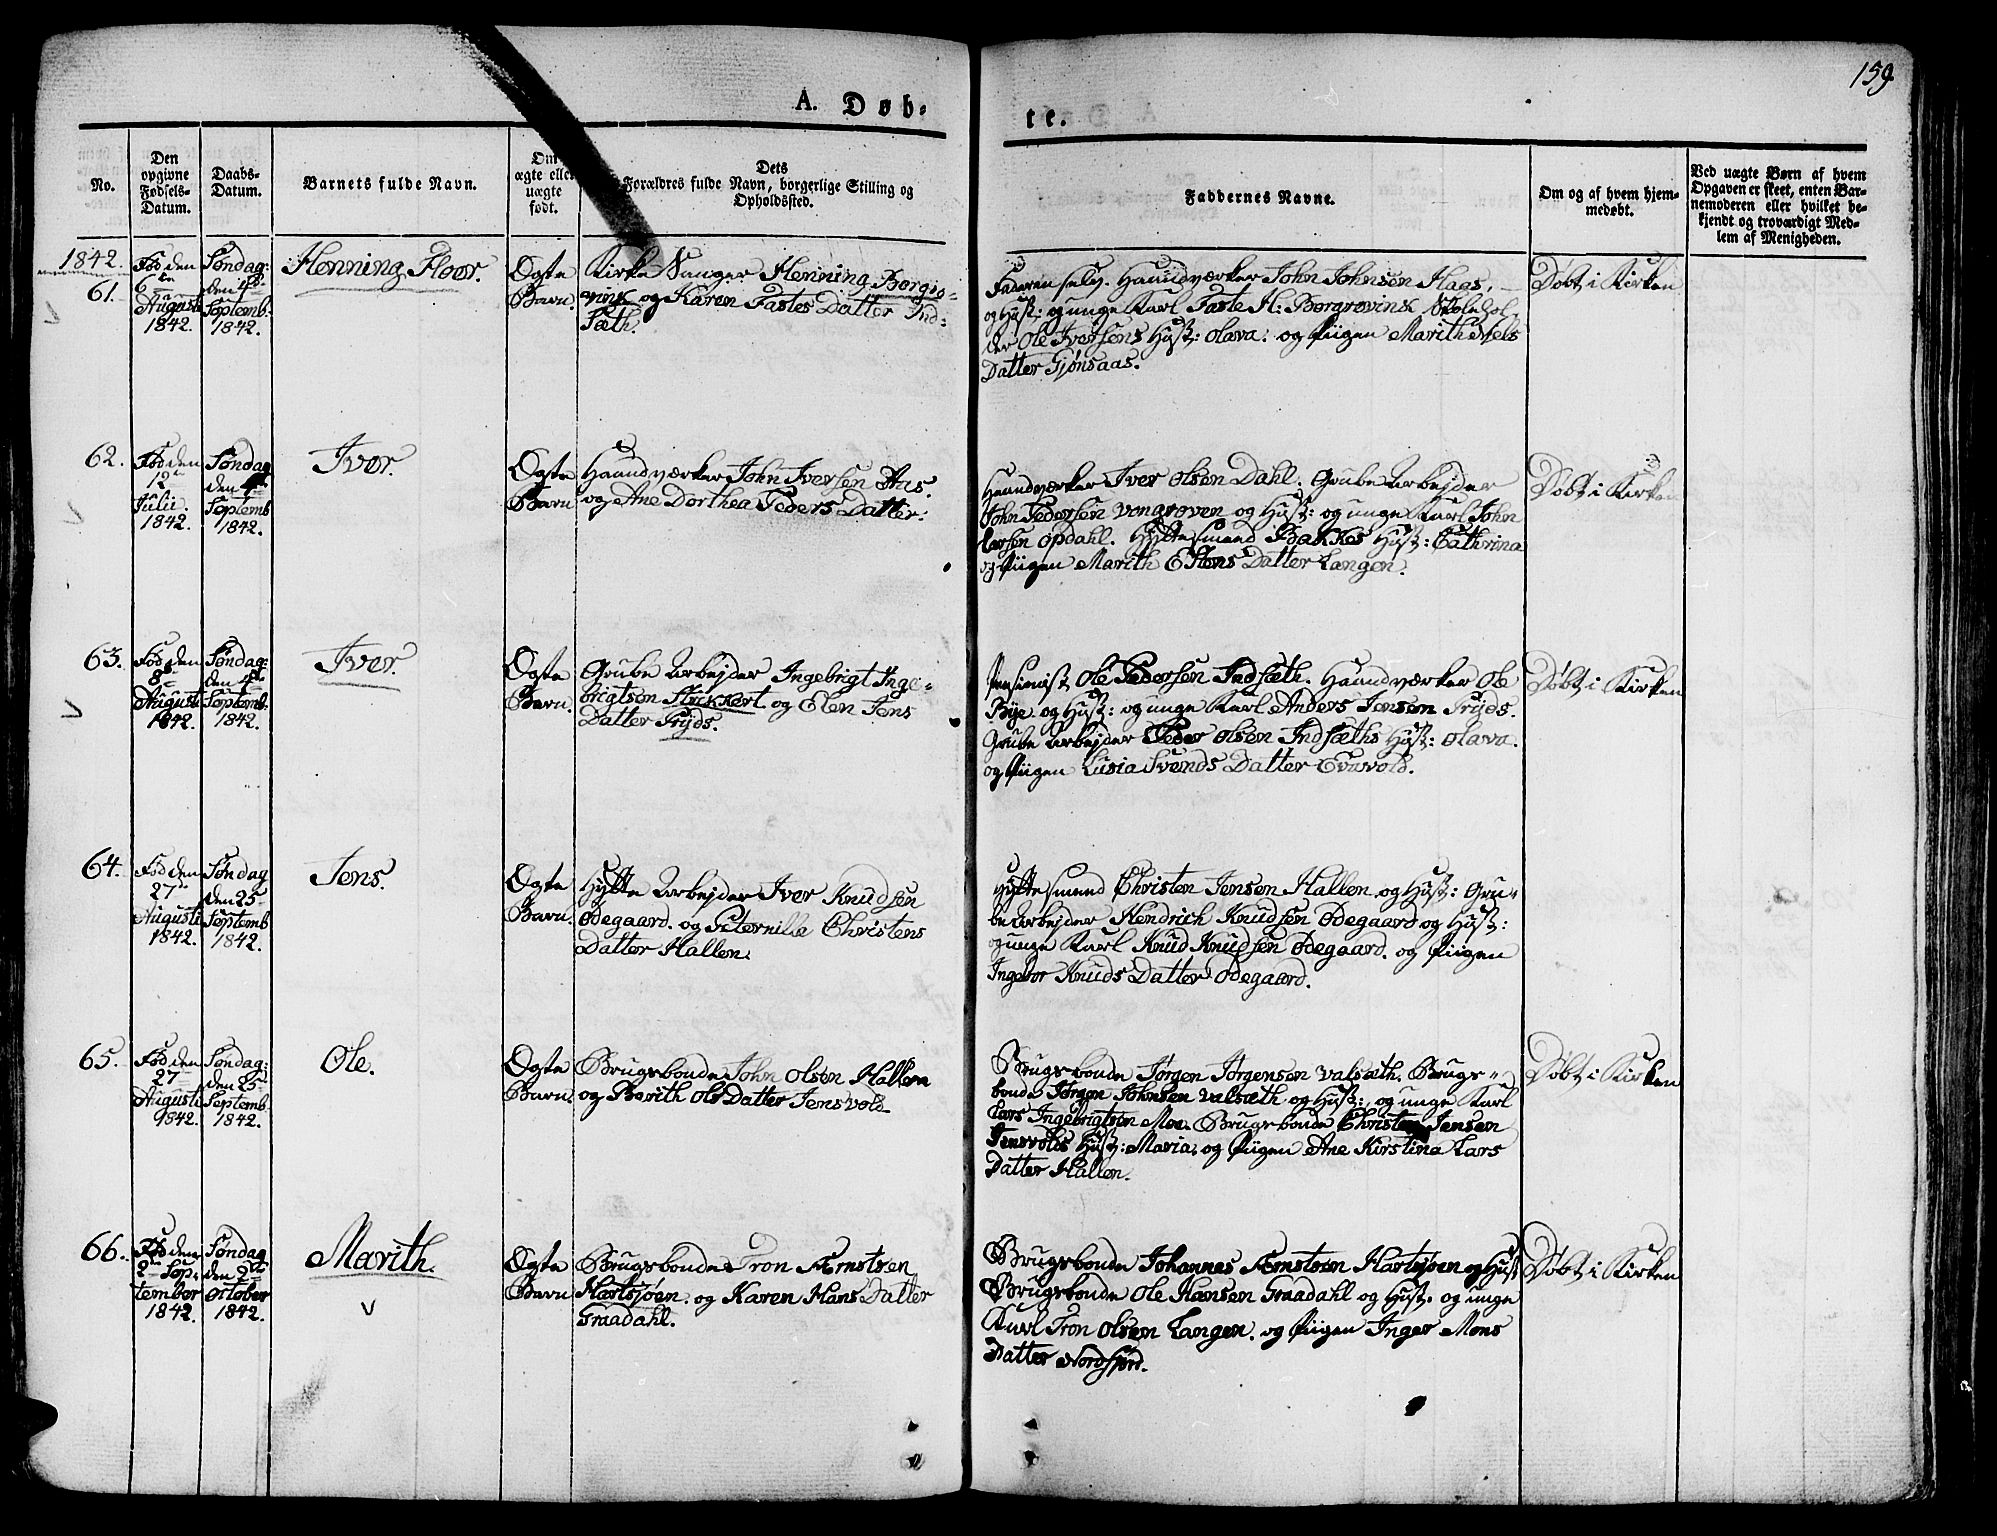 159
A. Døb-
te.
No.
Den opgivne Fødsels-Datum.
Daabs-Datum.
Barnets fulde Navn.
Om ægte eller uægte født.
Dets Forældres fulde Navn, borgerlige Stilling og Opholdssted.
Faddernes Navne.
Om og af hvem hjem-
medøbt.
Ved uægte Børn af hvem
Opgaven er skeet, enten Bar-
nemoderen eller hvilket be-
kjendt og troværdigt Med-
lem af Menigheden.
1842.
61.
Fød den
6te
Augusti
1842.
Søndag:
den 4de
Septemb.
1842.
Henning Floor.
Ægte
Barn.
Kirke Sanger Henning Borgre-
vink og Karen Fastes Datter Ind-
sæth.
Faderen selv. Haandværker John Johnsen Haas.
og Hust: og unge Karl Faste H: Borgrevink Skolehol-
der Ole Iversens Hust: Olava. og Piigen Marith Niels
Datter Gjønsaas.
Døbt i Kirken
62.
Fød den
12te
Julii.
1842.
Søndag
den 4de
Septemb
1842.
Iver.
Ægte
Barn
Haandværker John Iversen Aas.
og Ane Dorthea Peders Datter.
Haandværker Iver Olsen Dahl. Grube Arbejder
John Pedersen Vongrøven og Hust: og unge Karl John
Larsen Opdahl. Hyttesmend Bakkes Hust: Cathrina
og Piigen Marith Estens Datter Langen.
Døbt i Kirken
63.
Fød den
8de
Augusti
1842.
Søndag:
den 4de
Septemb.
1842.
Iver.
Ægte
Barn.
Grube Arbejder Ingebrigt Inge-
brigtsen Stikkert og Elen Jens
Datter Fryds.
Pensionist Ole Pedersen Indsæth. Haandværker Ole
Bye. og Hust: og unge Karl Anders Jensen Fryds.
Grube Arbejder Peder Olsen Indsæths Hust: Olava.
og Piigen Lusia Svends Datter
Døbt i Kirken
64.
Fød den
27de
Augusti
1842.
Søndag
den 25
Septemb
1842.
Jens.
Ægte
Barn.
Hytte Arbejder Iver Knudsen
Ødegaard. og Peternille Christens
Datter Hallen.
Hyttesmend Christen Jensen Hallen og Hust: Gru-
be Arbejder Hendrich Knudsen Ødegaard og Hust:
og unge Karl Knud Knudsen Ødegaard. og Piigen
Ingebor Knuds Datter Ødegaard.
65.
Fød den
27
Augusti
1842.
Søndag:
den 25
Septemb.
1842.
Ole.
Ægte
Barn.
Brugsbonde John Olsen Hallen
og Berith Ols Datter Jensvold
Brugsbonde Jørgen Jørgensen Valsæth. Brugs-
bonde Jørgen Johnsen Valsæth og Hust:, og unge Karl
Lars Ingebrigtsen Moe. Brugsbonde Christen Jensen
Jensvolds Hust: Maria, og Piigen Ane Kirstina Lars
Datter Hallen.
Døbt i Kirken
66.
Fød den
2den Sep.
tember
1842.
Søndag
den 2de
October
1842.
Marith.
Ægte
Barn
Brugsbonde Tron Arnstsen
Hartsjøen. og Karen Hans Datter
Graadahl.
Brugsbonde Johannes Arnstsen Hartsjøen og Hust
Brugsbonde Ole Hansen Graadahl og Hust. og unge
Karl Tron Olsen Langen. og Piigen Inger Mons
Datter Nordfjord.
Døbt i Kirken